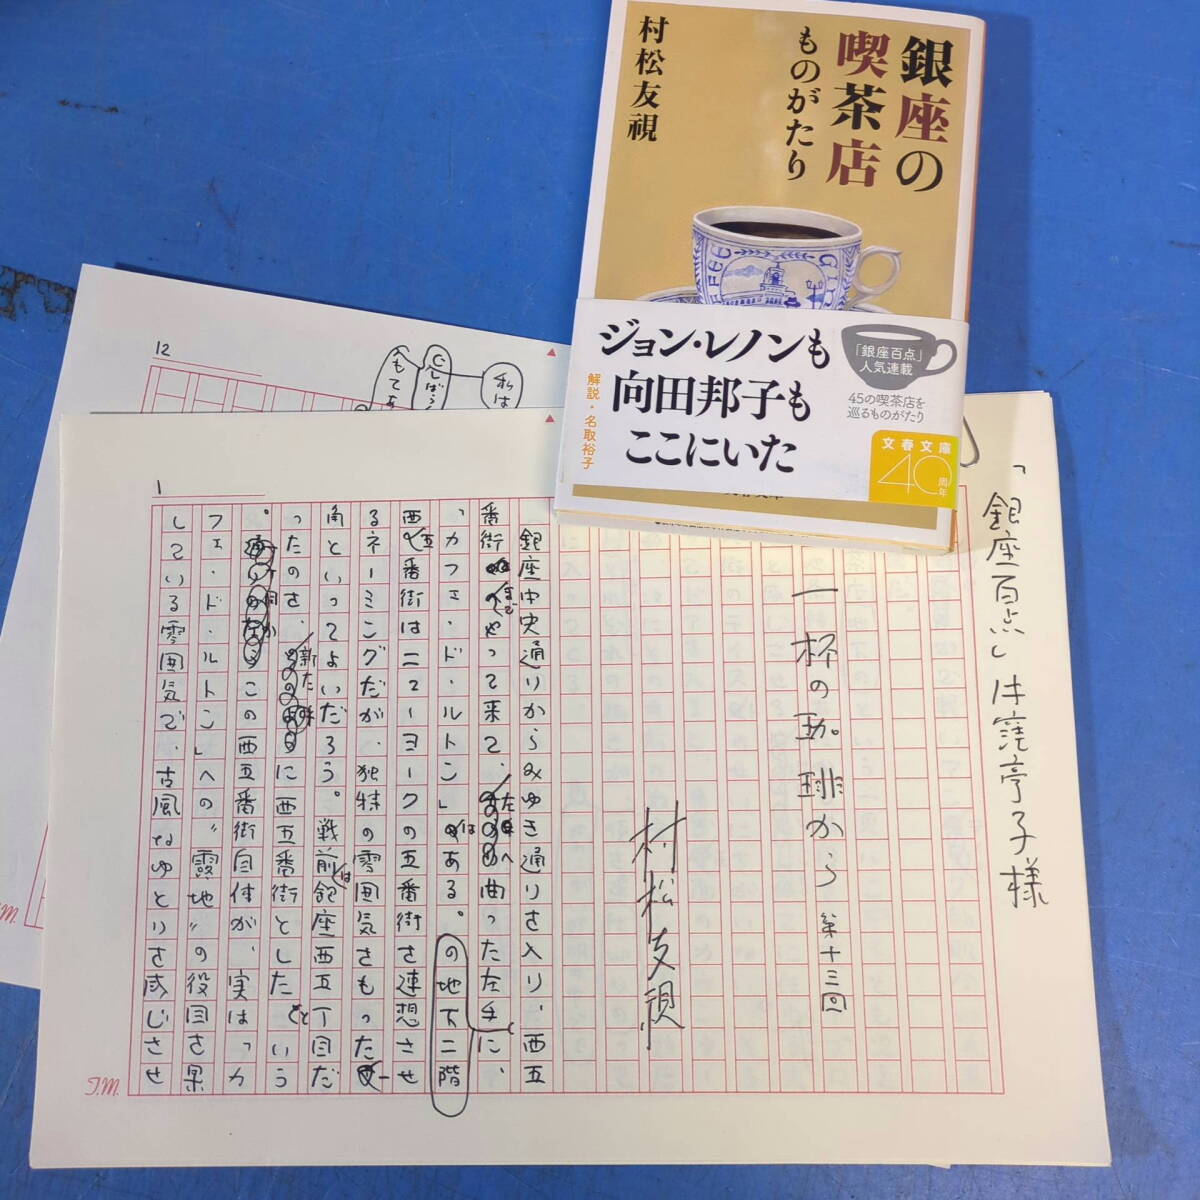 銀座の
喫茶店
ものがたり
村松友視
ジョン・レノンも
向田邦子も
ここにいた
解説・名取裕子
「銀座百点」
人気連載
45の喫茶店を
巡るものがたり
文春文庫
40
周年
12
私は
しばらく
1
「銀座百点」
亭子様
一杯の珈琲から 第十三回
村松友視
銀座中央通りからみゆき通りを入り、西五
番街までやって来て、左へ曲った左手に、
「カフェ・ド・ルトン」はある。の地下二階
西五番街はニューヨークの五番街を連想させ
るネーミングだが、独特の雰囲気をもった
一角といってよいだろう。戦前は銀座西五丁目だ
ったのを、新たに西五番街としたという
。この西五番街自体が、実は「カ
フェ・ド・ルトン」への〝露地〟の役目を果
している雰囲気で、古風なゆとりを感じさせ
T.M.